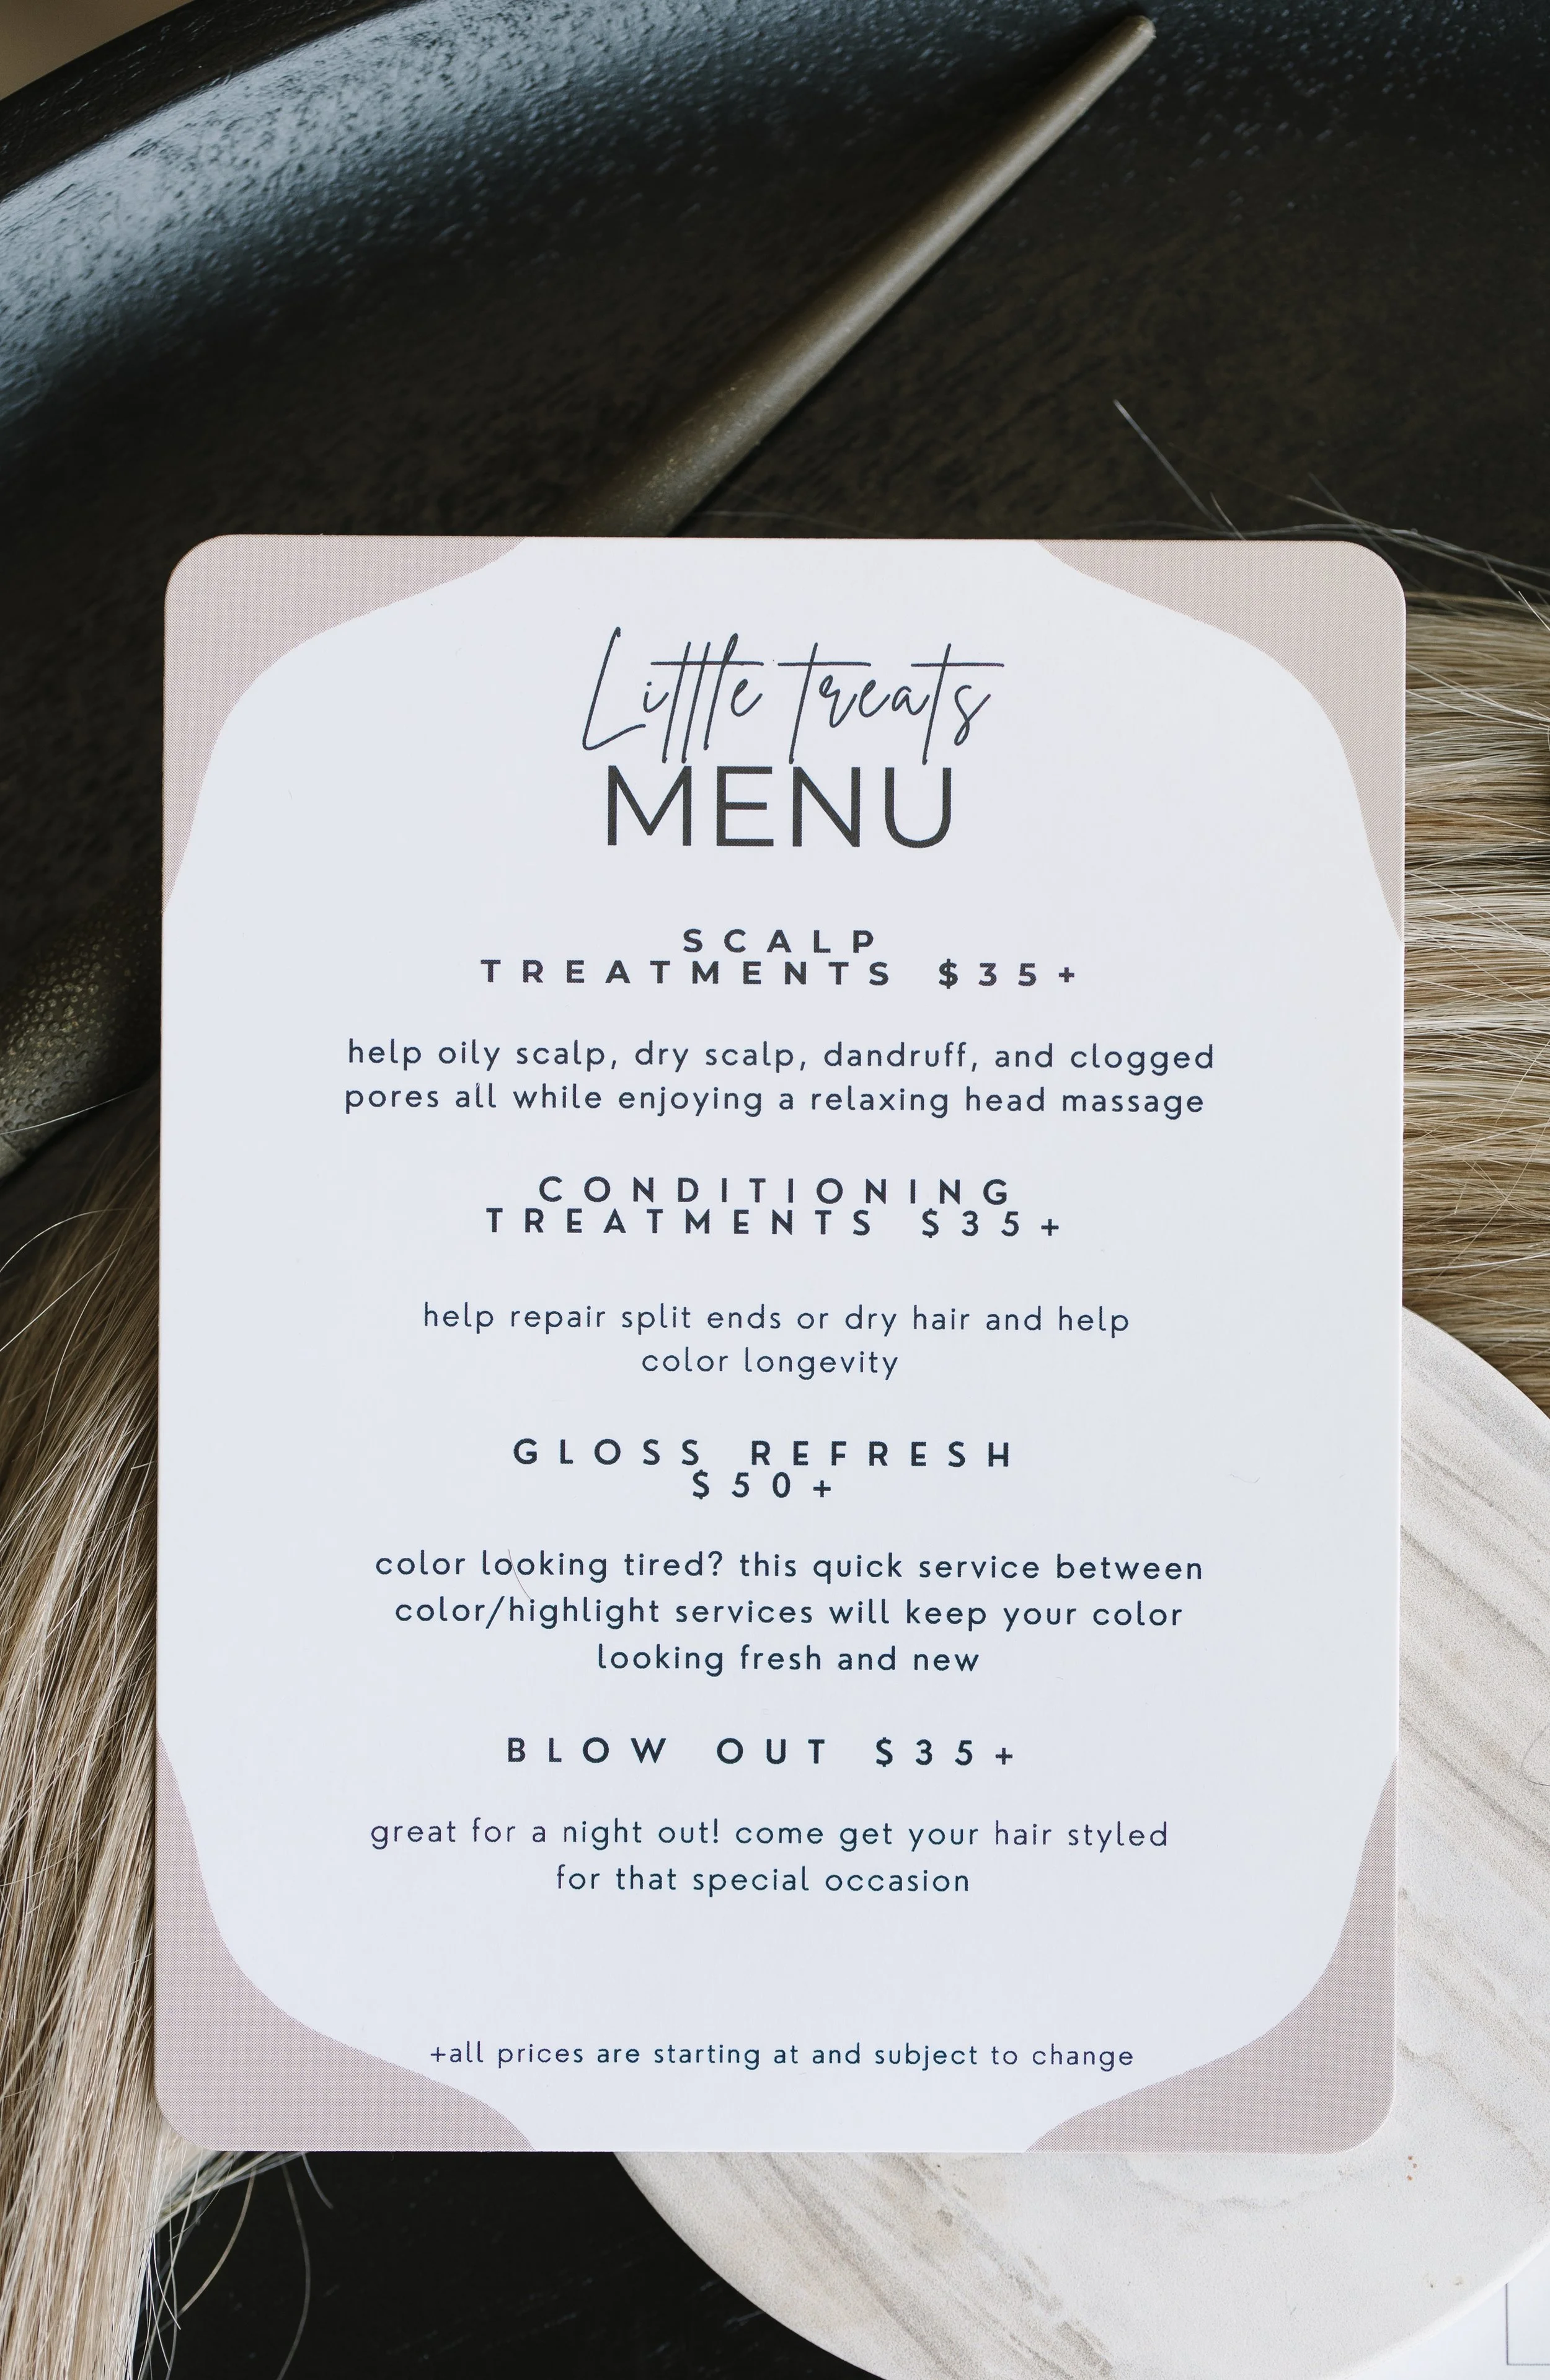 Little treats
MENU
SCALP
TREATMENTS $35+
help oily scalp, dry scalp, dandruff, and clogged
pores all while enjoying a relaxing head massage
CONDITIONING
TREATMENTS $35+
help repair split ends or dry hair and help
color longevity
GLOSS REFRESH
$50+
color looking tired? this quick service between
color/highlight services will keep your color
looking fresh and new
BLOW OUT $35+
great for a night out! come get your hair styled
for that special occasion
+all prices are starting at and subject to change